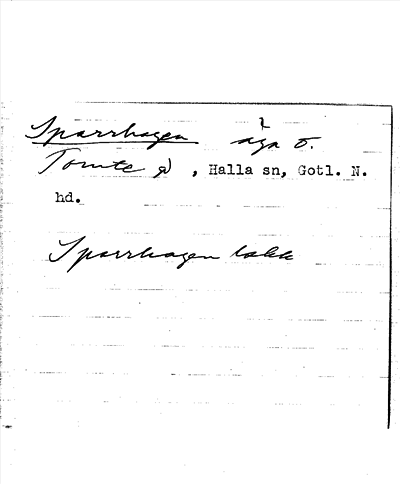 Sparrhagen äga ö.
Tomte gd, Halla sn, Gotl. N.
hd.
Sparrhagen takk